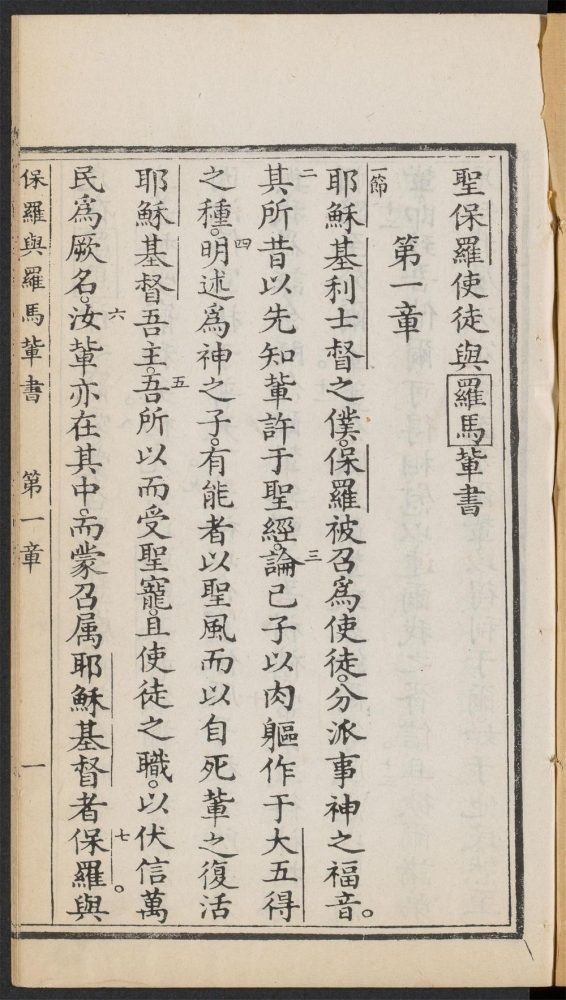 聖保羅使徒與羅馬輩書
第一章
一節耶穌基利士督之僕。保羅被召爲使徒。分派事神之福音。
二其所昔以先知輩許于聖經。三論己子以肉軀作于大五得
之種。四明述爲神之子。有能者以聖風而以自死輩之復活
耶穌基督吾主。五吾所以而受聖寵。且使徒之職。以伏信萬
民爲厥名。六汝輩亦在其中。而蒙召属耶穌基督者。七保羅與
保羅與羅馬輩書 第一章 一